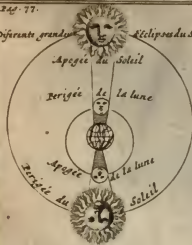 Pag. 77.
Diferente grandeur d'Eclipses du S
Apogée du Soleil
Perigée de la lune
Apogée de la lune
Perigée du Soleil